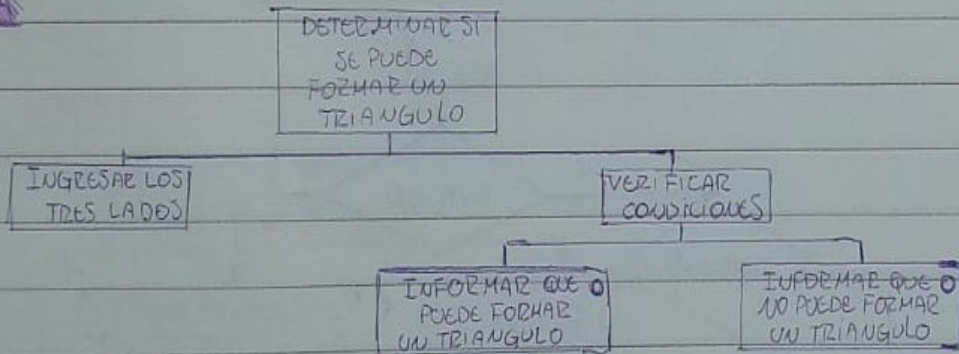 DETERMINAR SI
SE PUEDE
FORMAR UN
TRIANGULO
INGRESAR LOS
TRES LADOS
VERIFICAR
CONDICIONES
INFORMAR QUE O
PUEDE FORMAR
UN TRIANGULO
INFORMAR QUE O
NO PUEDE FORMAR
UN TRIANGULO